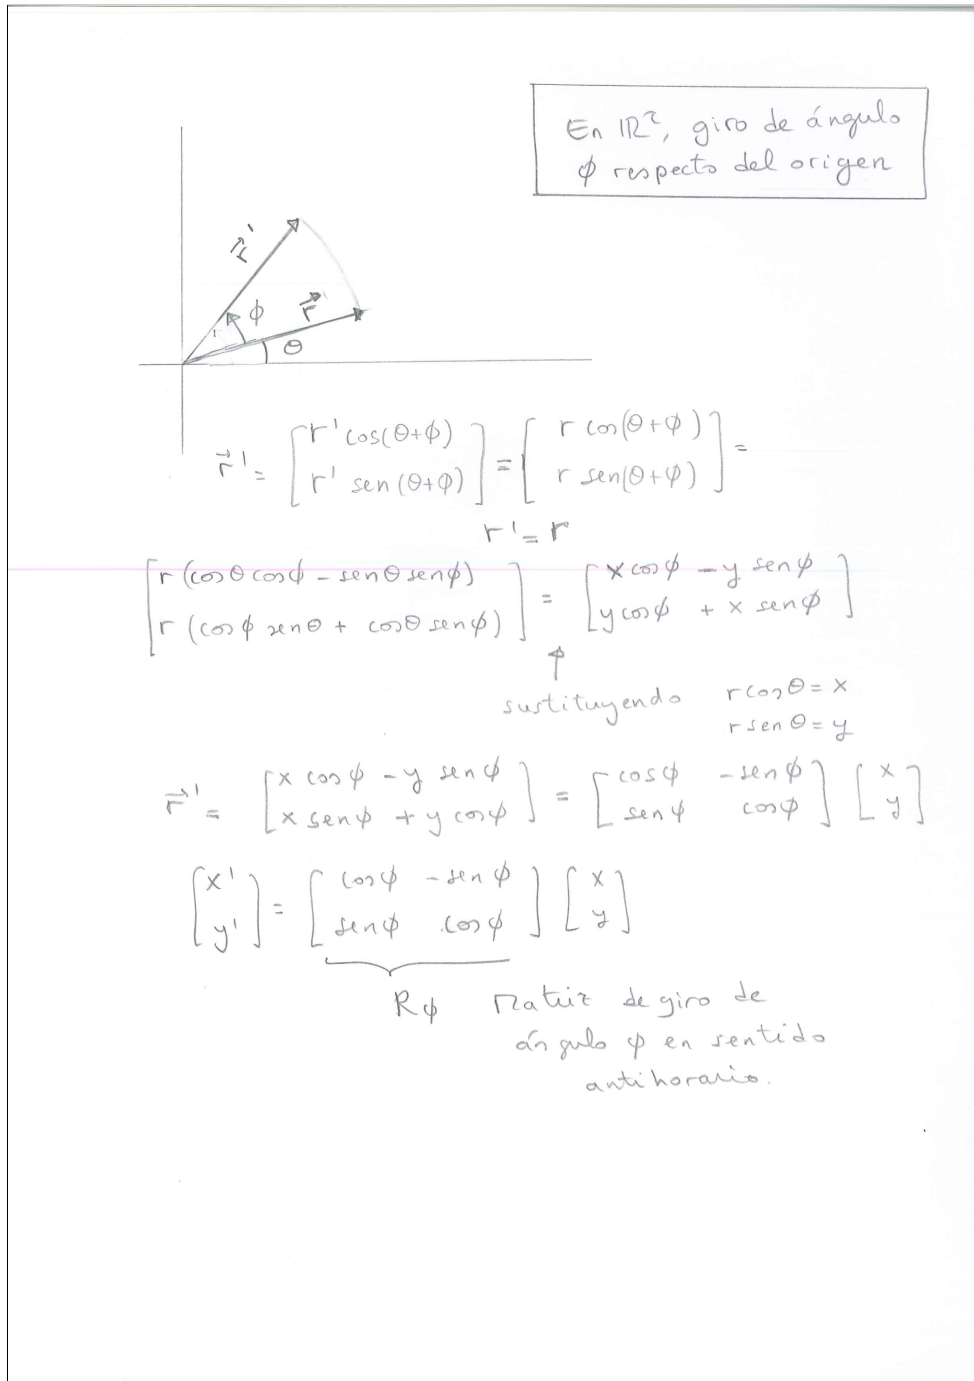 En ℝ², giro de ángulo
ϕ respecto del origen
r⃗'
ϕ
r⃗
θ
r⃗' = [ r' cos(θ+ϕ) ; r' sen(θ+ϕ) ] = [ r cos(θ+ϕ) ; r sen(θ+ϕ) ] =
r' = r
[ r (cosθ cosϕ - senθ senϕ) ; r (cosϕ senθ + cosθ senϕ) ] = [ x cosϕ - y senϕ ; y cosϕ + x senϕ ]
↑
sustituyendo r cosθ = x
r senθ = y
r⃗' = [ x cosϕ - y senϕ ; x senϕ + y cosϕ ] = [ cosϕ -senϕ ; senϕ cosϕ ] [ x ; y ]
[ x' ; y' ] = [ cosϕ -senϕ ; senϕ cosϕ ] [ x ; y ]
Rϕ Matriz de giro de
ángulo ϕ en sentido
antihorario.